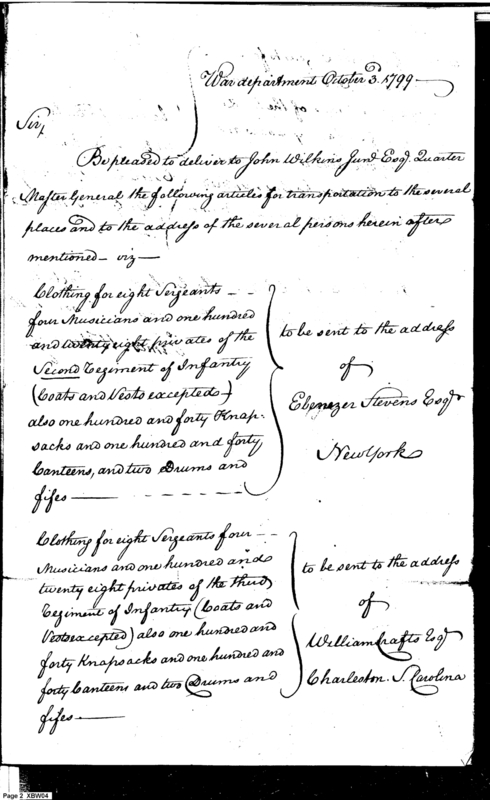 War department October 3. 1799
Sir,
Be pleased to deliver to John Wilkins Junr Esqr. Quarter
Master General the following articles for transportation to the several
places and to the address of the several persons herein after
mentioned - viz -
Clothing for eight Sergeants - -
four Musicians and one hundred
and twenty eight privates of the
Second Regiment of Infantry
(Coats and Vests excepted)
also one hundred and forty Knap-
sacks and one hundred and forty
Canteens, and two Drums and
fifes -
to be sent to the address
of
Ebenezer Stevens Esqr
New York
Clothing for eight Sergeants four - -
Musicians and one hundred and
twenty eight privates of the third
Regiment of Infantry (Coats and
Vests excepted) also one hundred and
forty Knapsacks and one hundred and
forty Canteens and two Drums and
fifes -
to be sent to the address
of
William Crafts Esqr
Charleston. S. Carolina
Page 2 XBW04